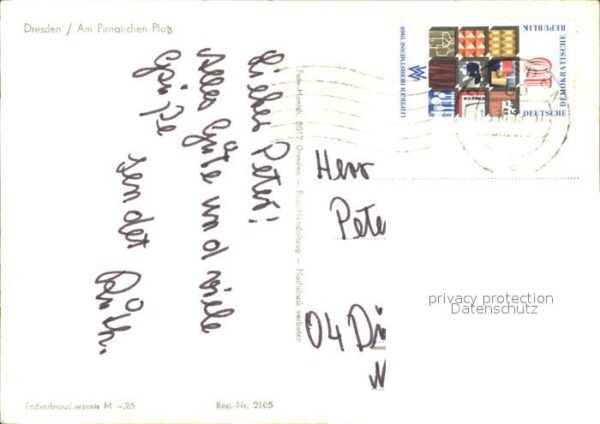 Dresden / Am Pirnaischen Platz
Lieber Peter!
Alles Gute und viele
Grüße
sendet
Foto-Handzik, 8017 Dresden — Foto-Handabzug — Nachdruck verboten
LEIPZIGER HERBSTMESSE 1969
DEUTSCHE
DEMOKRATISCHE
REPUBLIK
10
Herr
Pete
04 Dö
privacy protection
Datenschutz
Endverbraucherpreis M —,25
Best.-Nr. 2105